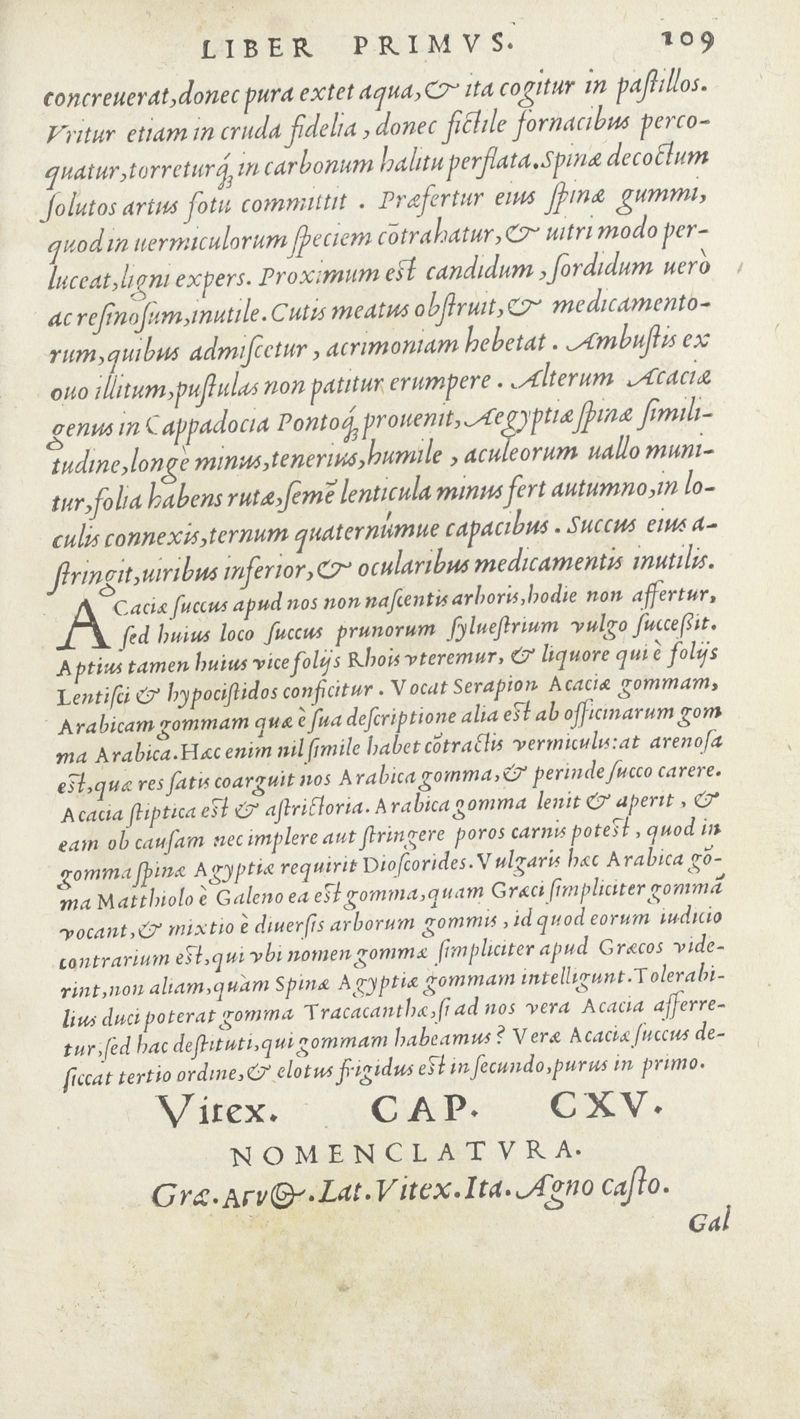 LIBER PRIMVS. 109
concreuerat, donec pura extet aqua, & ita cogitur in paſtillos.
Vritur etiam in cruda fidelia, donec fictile fornacibus perco-
quatur, torreturq́; in carbonum halitu perflata. Spinæ decoctum
ſolutos artus fotu committit. Præfertur eius ſpinæ gummi,
quod in uermiculorum ſpeciem cōtrahatur, & uitri modo per-
luceat, ligni expers. Proximum eſt candidum, ſordidum uerò
ac reſinoſum, inutile. Cutis meatus obſtruit, & medicamento-
rum, quibus admiſcetur, acrimoniam hebetat. Ambuſtis ex
ouo illitum, puſtulas non patitur erumpere. Alterum Acaciæ
genus in Cappadocia Pontoq́; prouenit, Aegyptiæ ſpinæ ſimili-
tudine, longè minus, tenerius, humile, aculeorum uallo muni-
tur, folia habens rutæ, ſemē lenticula minus fert autumno, in lo-
culis connexis, ternum quaternúmue capacibus. Succus eius a-
ſtringit, uiribus inferior, & ocularibus medicamentis inutilis.
ACaciæ ſuccus apud nos non naſcentis arboris, hodie non affertur,
ſed huius loco ſuccus prunorum ſylueſtrium vulgo ſucceßit.
Aptius tamen huius vice folijs Rhois vteremur, & liquore qui è folijs
Lentiſci & hypociſtidos conficitur. Vocat Serapion Acaciæ gommam,
Arabicam gommam quæ è ſua deſcriptione alia eſt ab officinarum gom
ma Arabica. Hæc enim nil ſimile habet cōtractis vermiculis: at arenoſa
eſt, quæ res ſatis coarguit nos Arabica gomma, & perinde ſucco carere.
Acacia ſtiptica eſt & aſtrictoria. Arabica gomma lenit & aperit, &
eam ob cauſam nec implere aut ſtringere poros carnis poteſt, quod in
gomma ſpinæ Agyptiæ requirit Dioſcorides. Vulgaris hæc Arabica gō-
ma Matthiolo è Galeno ea eſt gomma, quam Græci ſimpliciter gommā
vocant, & mixtio è diuerſis arborum gommis, id quod eorum iudicio
contrarium eſt, qui vbi nomen gommæ ſimpliciter apud Græcos vide-
rint, non aliam, quàm Spinæ Agyptiæ gommam intelligunt. Tolerabi-
lius duci poterat gomma Tracacanthæ, ſi ad nos vera Acacia afferre-
tur, ſed hac deſtituti, qui gommam habeamus? Veræ Acaciæ ſuccus de-
ſiccat tertio ordine, & elotus frigidus eſt in ſecundo, purus in primo.
Vitex. CAP. CXV.
NOMENCLATVRA.
Græ. Lat. Vitex. Ita. Agno caſto.
Gal